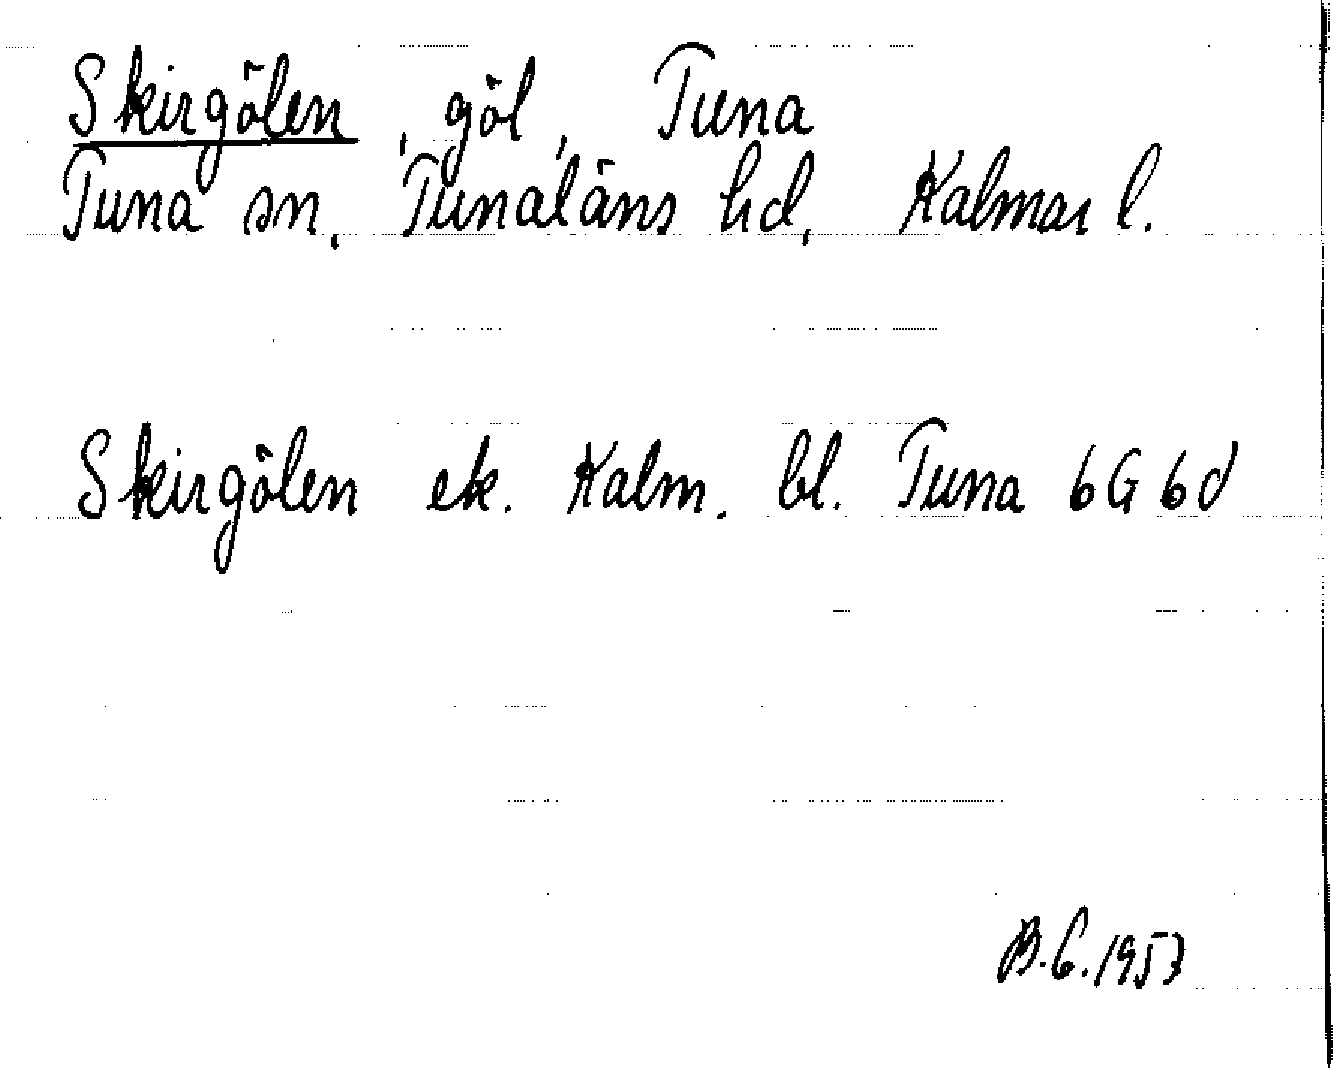 Skirgölen, göl, Tuna
Tuna sn, Tunaläns hd, Kalmar l.
Skirgölen ek. Kalm. bl. Tuna 6G 6d